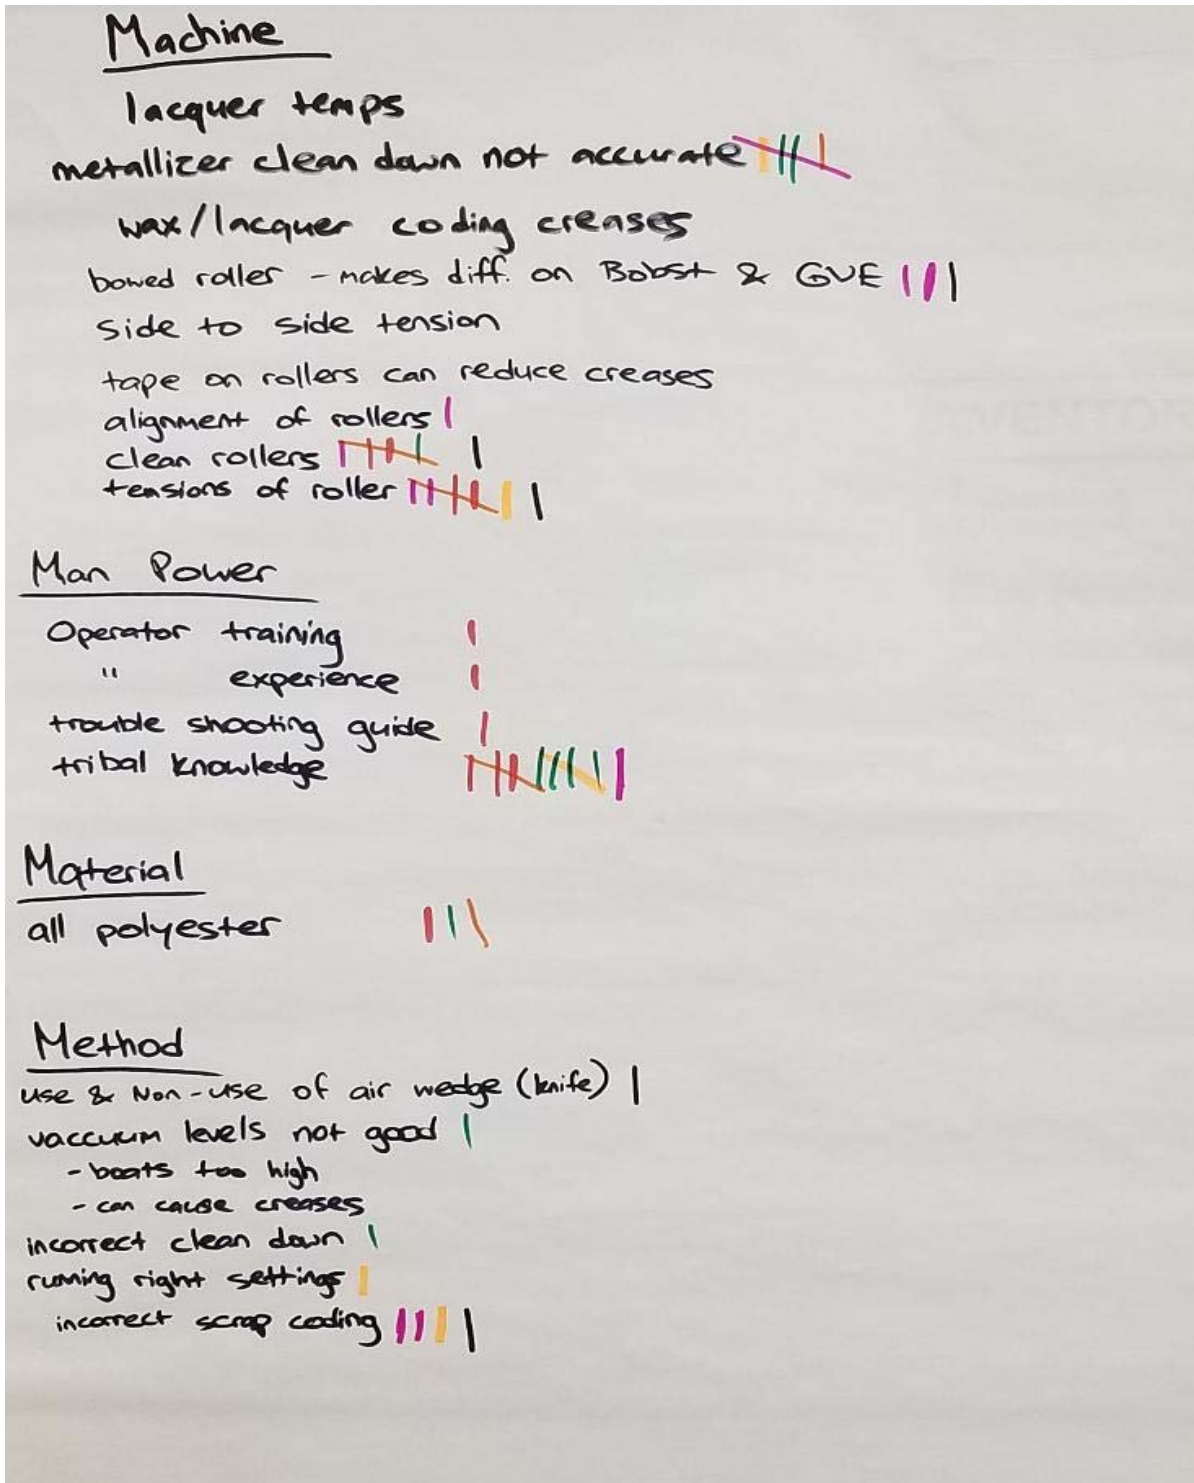 Machine
lacquer temps
metallizer clean down not accurate
wax/lacquer coding creases
bowed roller - makes diff. on Bobst & GVE
side to side tension
tape on rollers can reduce creases
alignment of rollers
clean rollers
tensions of roller
Man Power
Operator training
" experience
trouble shooting guide
tribal knowledge
Material
all polyester
Method
use & Non-use of air wedge (knife)
vaccuum levels not good
- boats too high
- can cause creases
incorrect clean down
running right settings
incorrect scrap coding